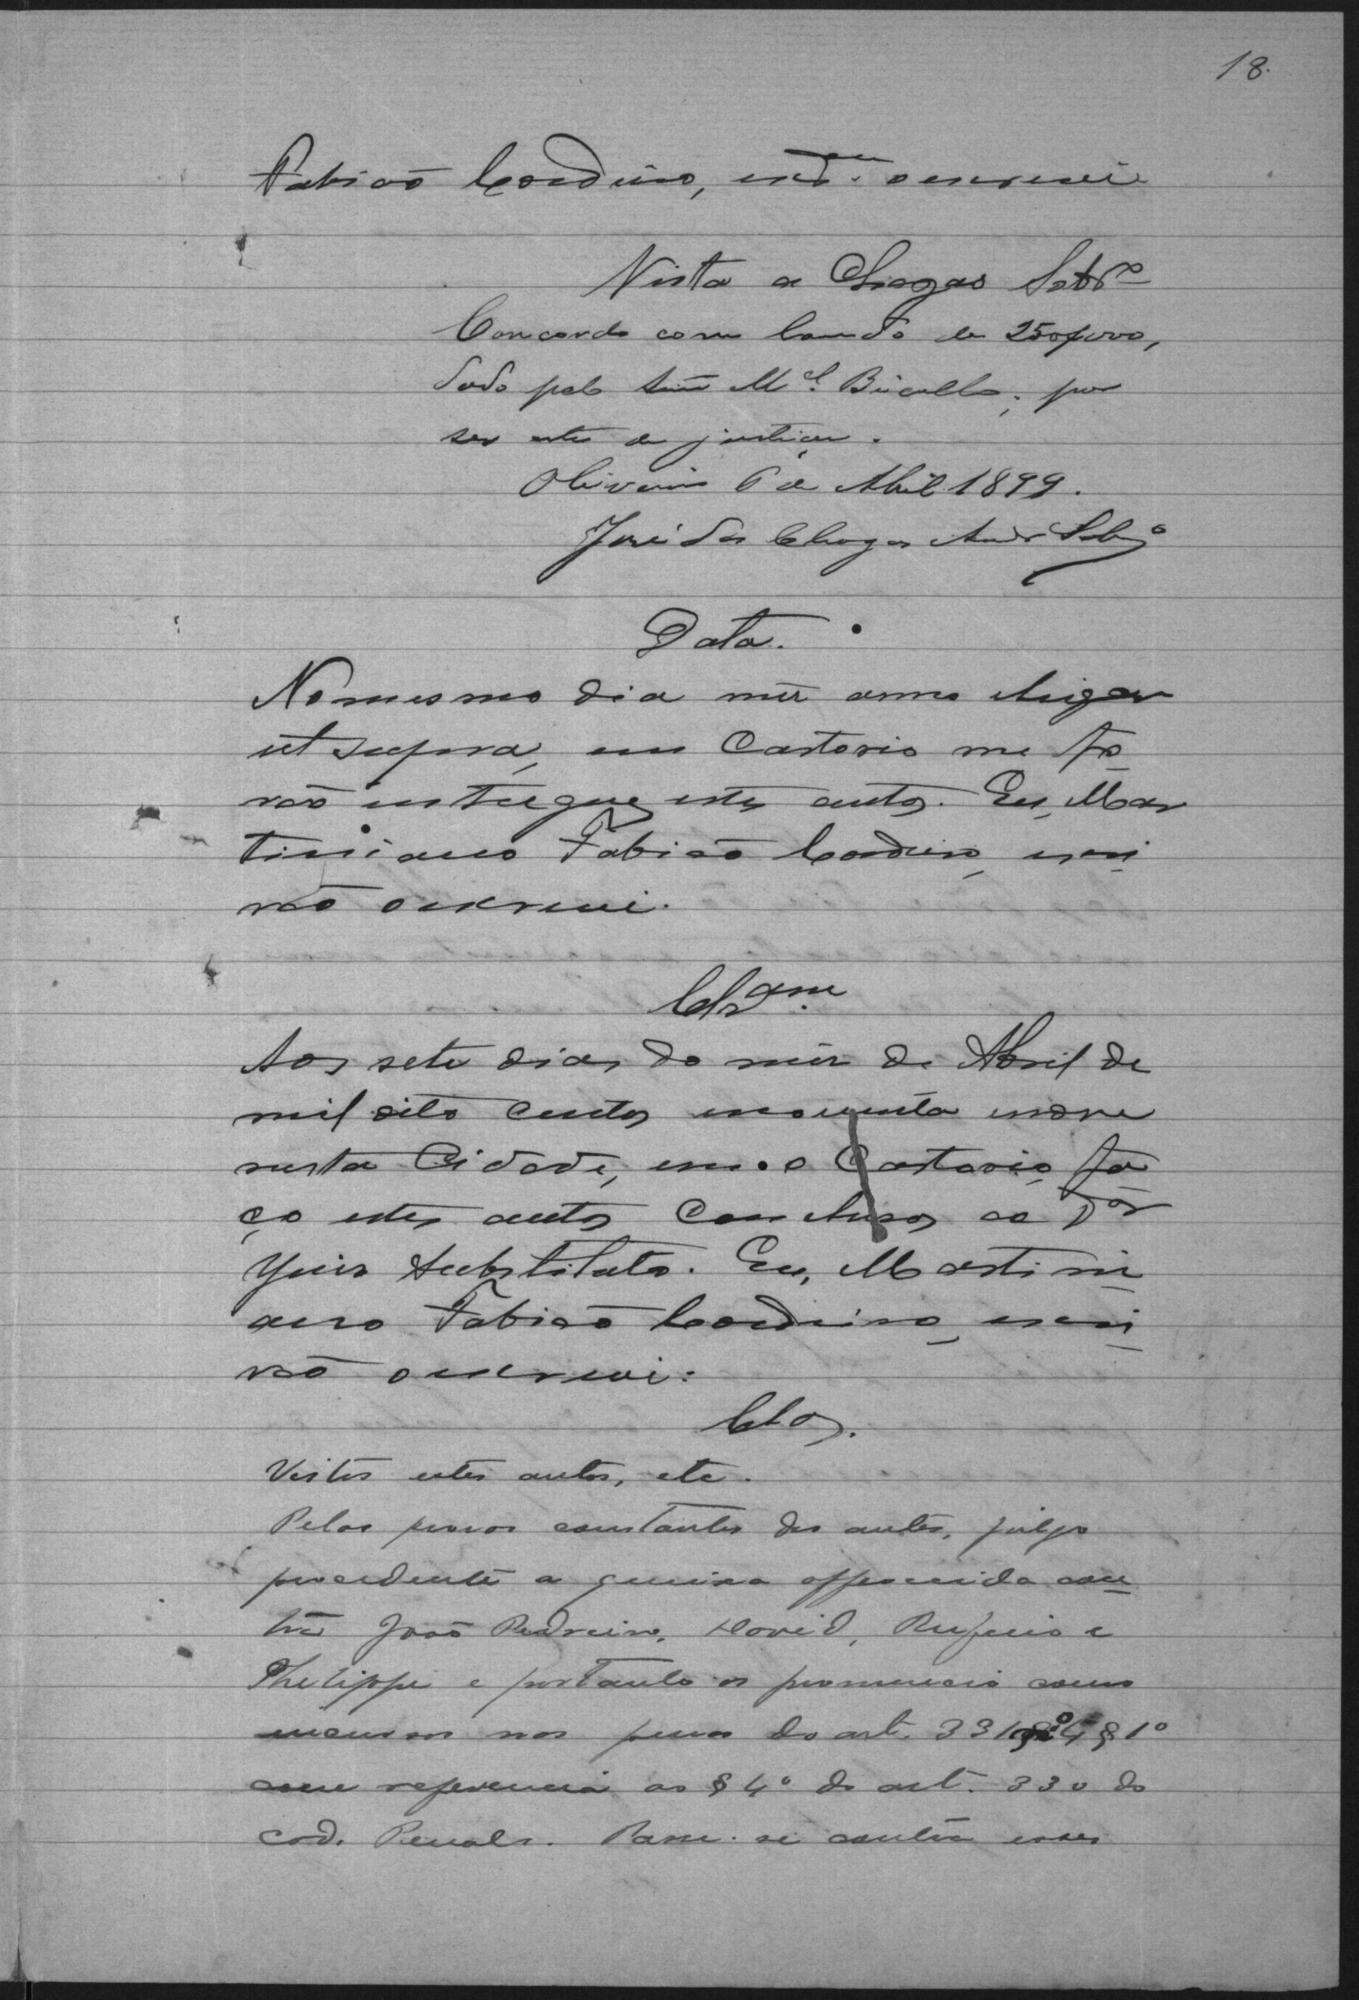 18.
Fabião Cordeiro, escram o escrevi
Vista a Chagas Sobro
Concordo com laudo de 250$000,
dado pelo Mel. Bicalho, por
ser este de justiça.
Oliveira 6 de Abril 1899.
José das Chagas Andr Sobo
Data.
No mesmo dia mez anno e lugar
ut supra, em Cartorio me fo
rão entregues estes autos. Eu, Mar
tiniano Fabião Cordeiro, escri
vão o escrevi.
Clsam.
Aos sete dias do mez de Abril de
mil oito centos e noventa e nove
nesta Cidade, em o Cartorio, fa
ço estes autos Conclusos ao Dor
Juiz Substituto. Eu, Martini
ano Fabião Cordeiro, escri
vão o escrevi:
Clos.
Vistos estes autos, etc.
Pelas provas constantes dos autos, julgo
procedente a queixa offerecida con
tra João Pedreiro, David, Rufino e
Philippe e portanto os pronuncio como
incursos nas penas do art. 331 4 § 1o
com referencia ao § 4o do art. 330 do
cod. Penal. Passe-se contra esses